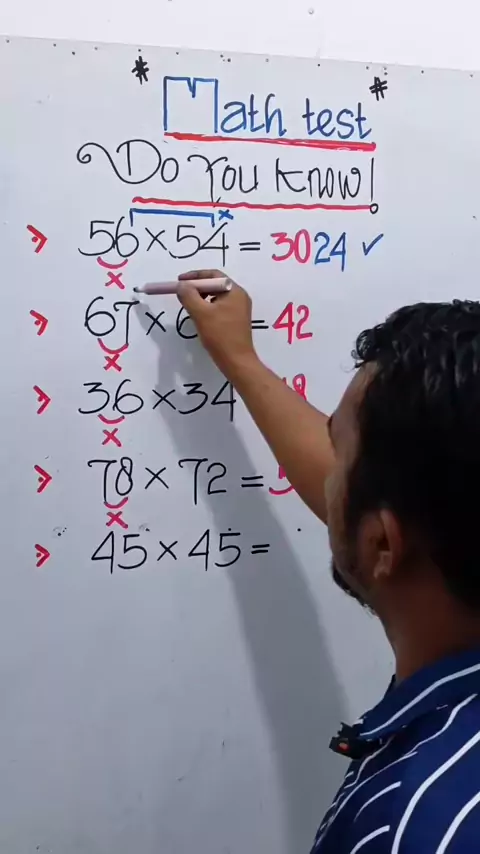 * Math test *
Do You know!
56 × 54 = 3024 ✓
×
67 × 6 = 42
×
36 × 34 8
×
78 × 72 = 5
×
45 × 45 =